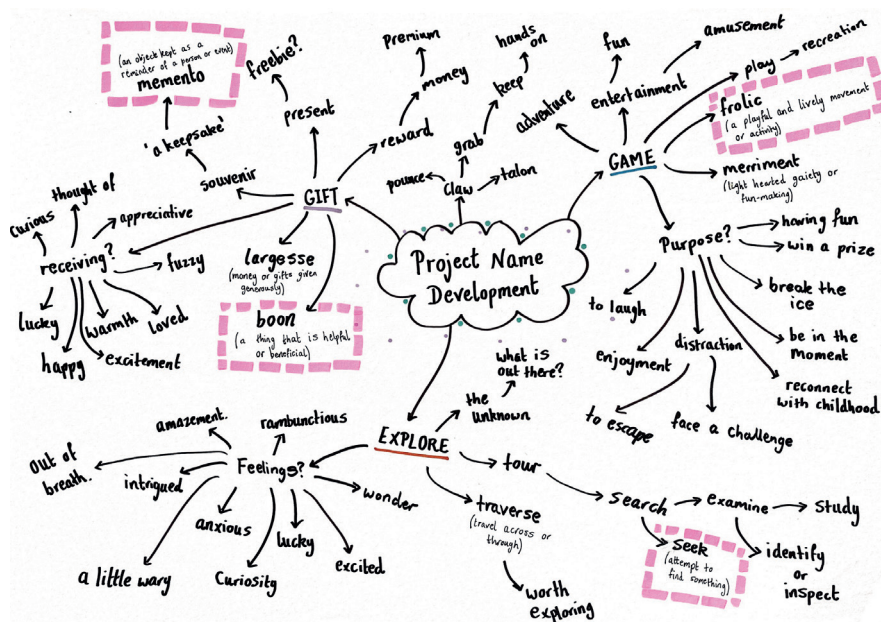 Project Name
Development
GIFT
present
freebie?
souvenir
'a keepsake'
(an object kept as a
reminder of a person or event)
memento
reward
money
premium
largesse
(money or gifts given
generously)
boon
(a thing that is helpful
or beneficial)
receiving?
curious
thought of
appreciative
fuzzy
loved
warmth
excitement
happy
lucky
claw
pounce
talon
grab
keep
hands
on
GAME
adventure
entertainment
fun
amusement
play
recreation
frolic
(a playful and lively movement
or activity)
merriment
(light hearted gaiety or
fun-making)
Purpose?
having fun
win a prize
break the
ice
be in the
moment
reconnect
with childhood
distraction
face a challenge
to escape
enjoyment
to laugh
EXPLORE
the
unknown
what is
out there?
tour
search
examine
study
identify
or
inspect
seek
(attempt to
find something)
traverse
(travel across or
through)
worth
exploring
Feelings?
rambunctious
amazement.
out of
breath.
intrigued
a little wary
anxious
curiosity
lucky
excited
wonder